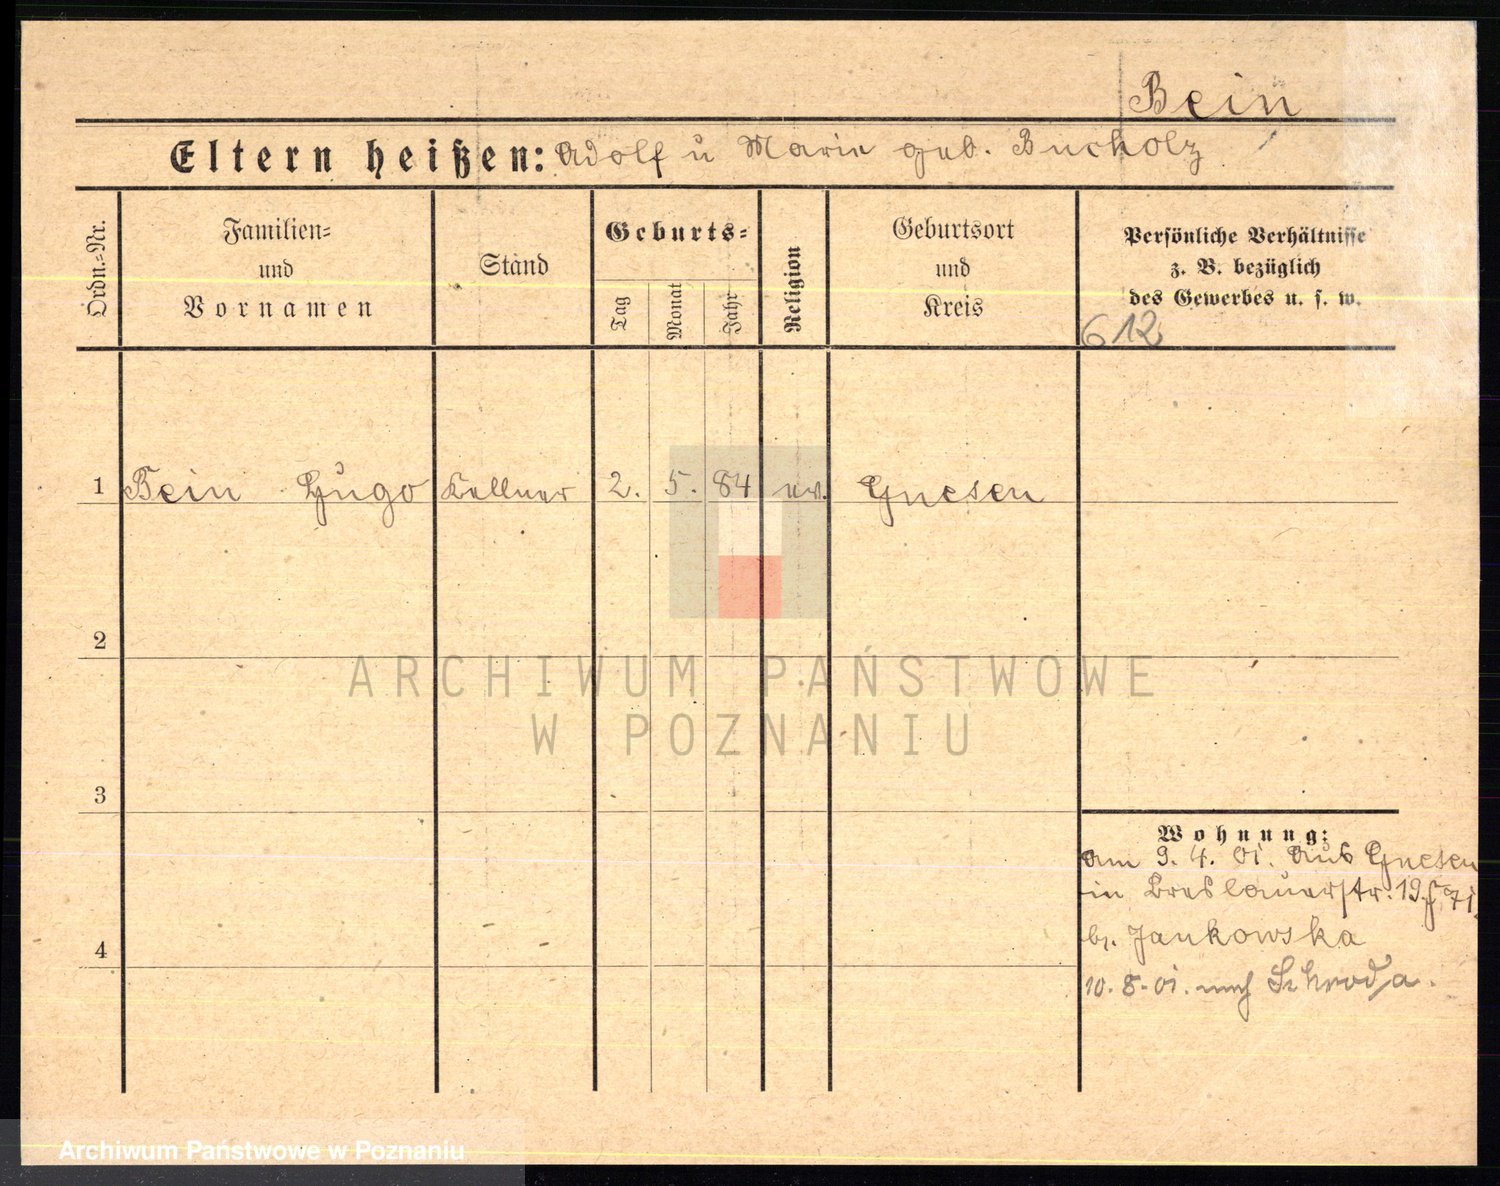 Bein
Eltern heißen: Adolf u Marie geb. Bucholz
Ordn.-Nr.
Familien-
und
Vornamen
Stand
Geburts-
Tag
Monat
Jahr
Religion
Geburtsort
und
Kreis
Persönliche Verhältnisse
z. B. bezüglich
des Gewerbes u. s. w.
612
1 Bein Hugo Kellner 2. 5. 84 ev. Gnesen
2
3
4
Wohnung:
am 9. 4. 01. aus Gnesen
in Breslauerstr. 19.
bei Jankowska
10. 8. 01. nach Schroda.
ARCHIWUM PAŃSTWOWE
W POZNANIU
Archiwum Państwowe w Poznaniu